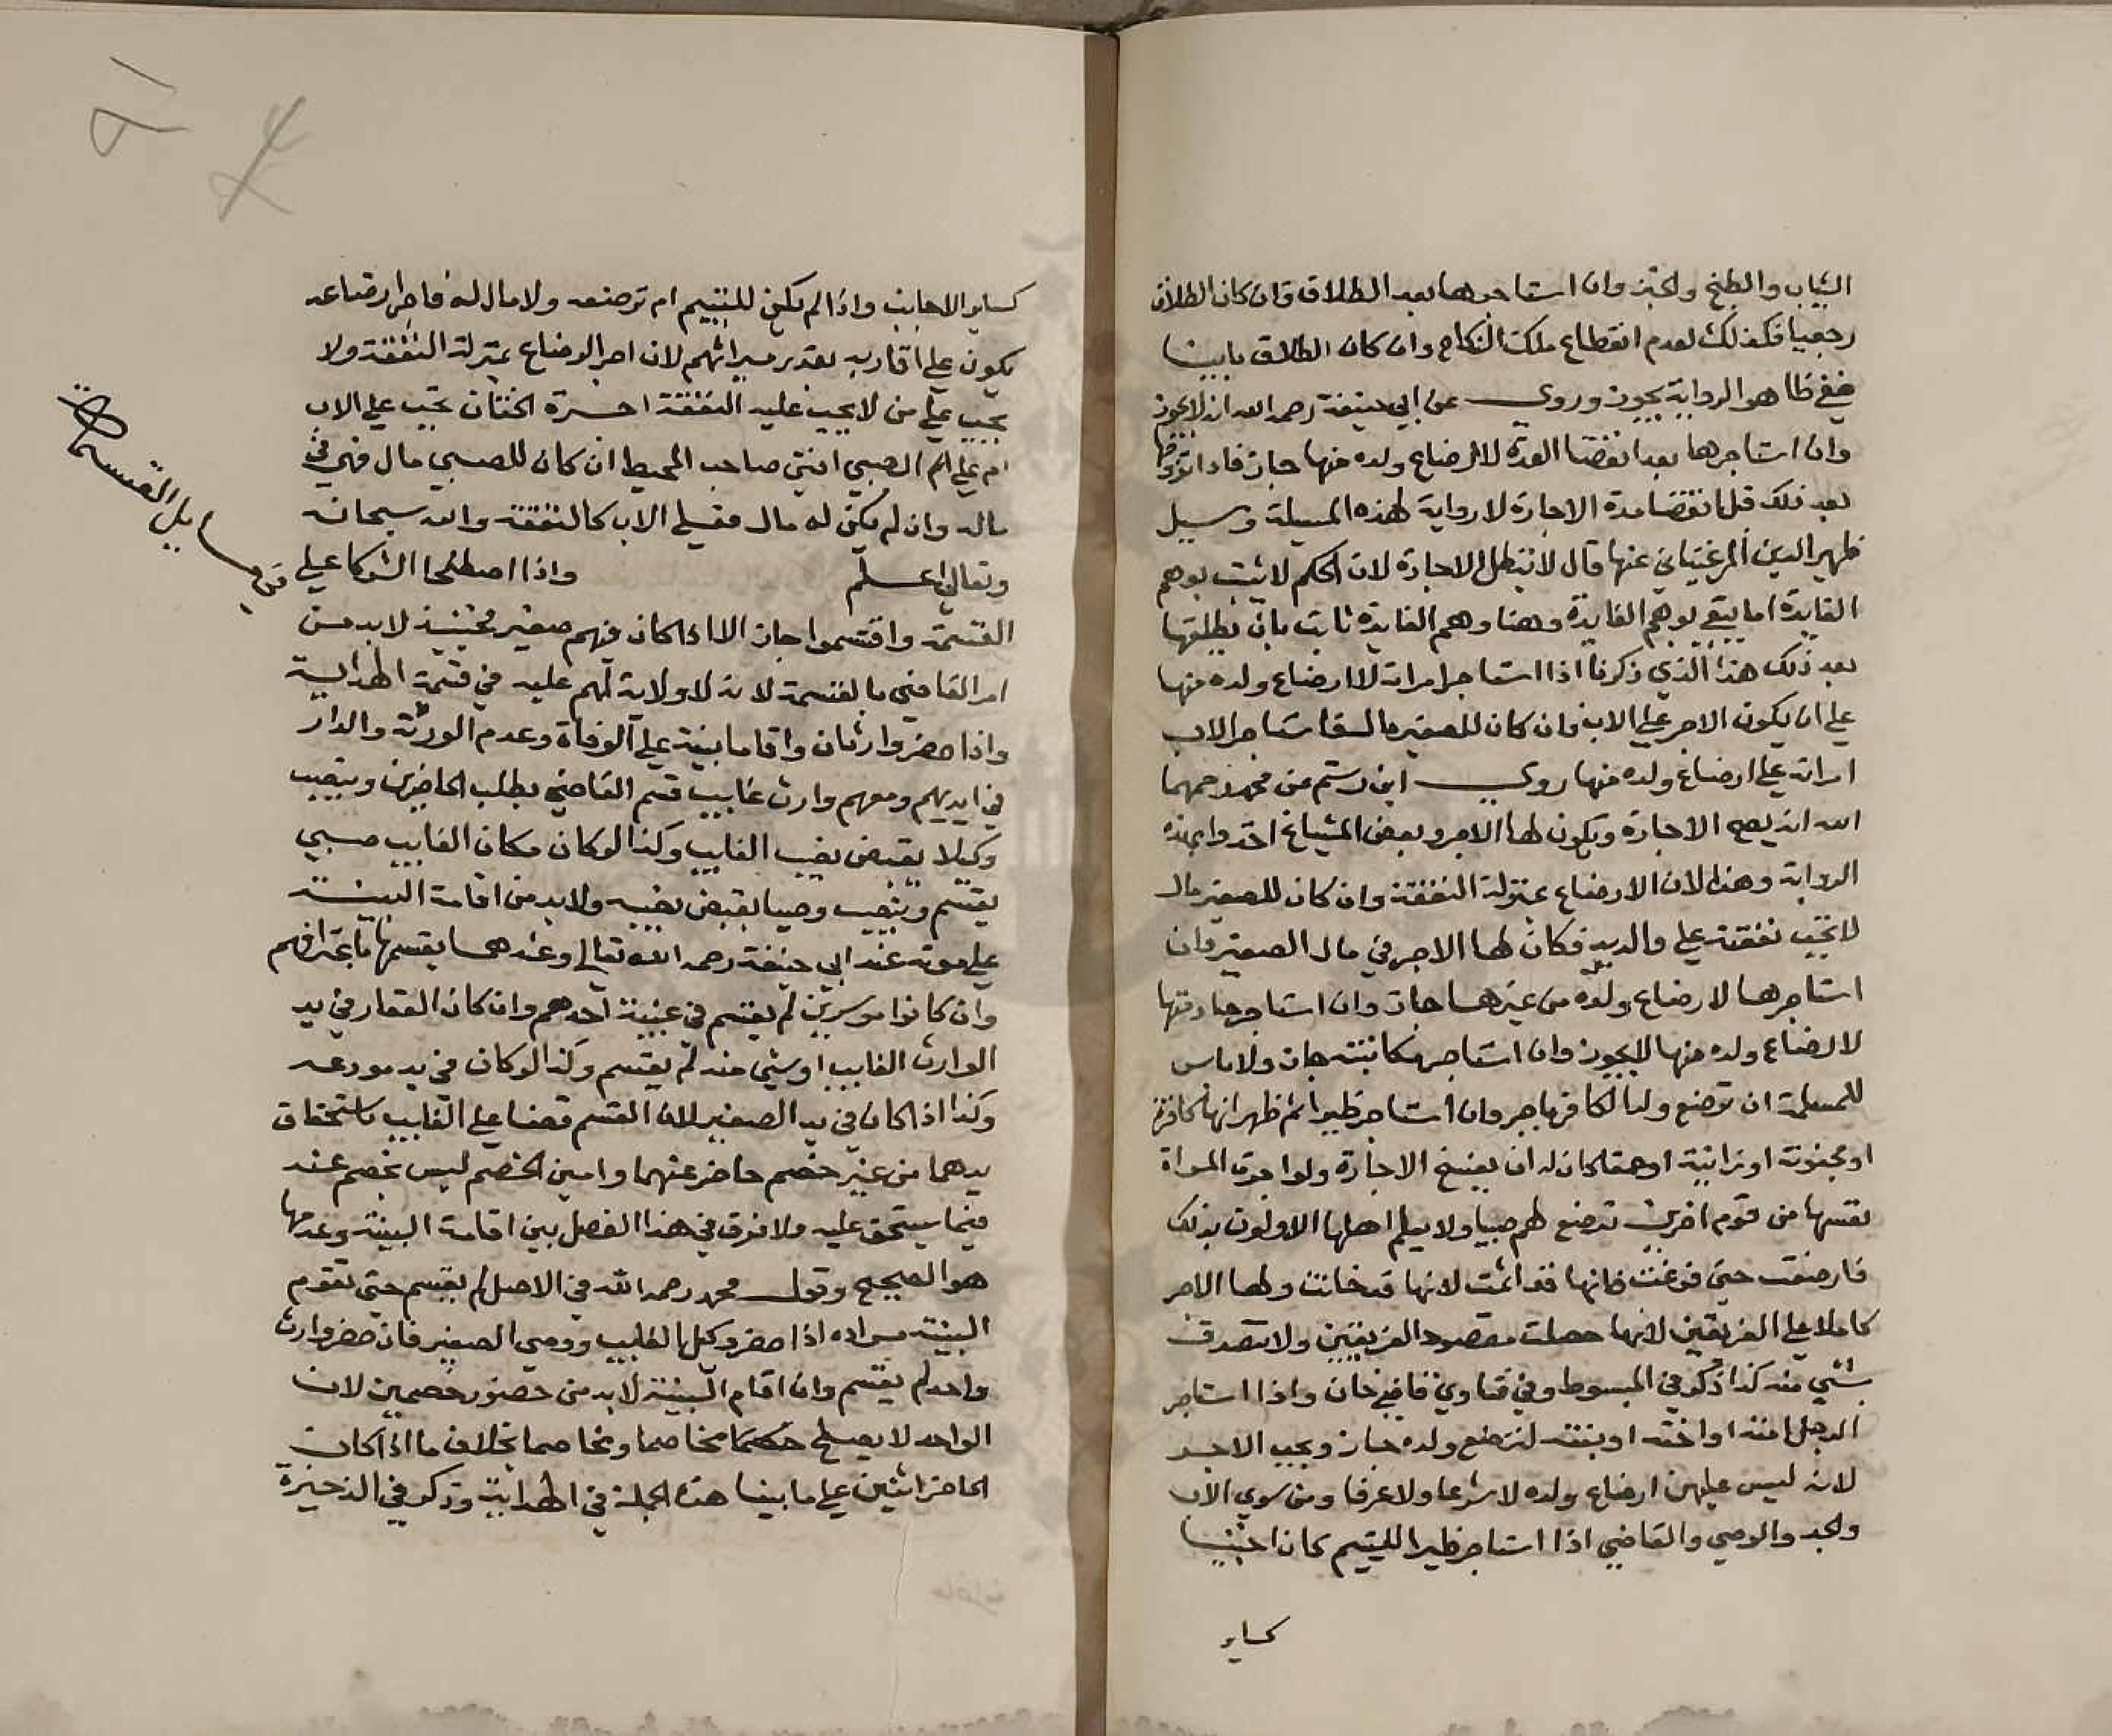 الثياب والطبخ والخبز وان استاجرها بعد الطلاق فان كان الطلاق
رجعيا فكذلك لعدم انقطاع ملك النكاح وان كان الطلاق باينا
ففي ظاهر الرواية يجوز وروي عن ابي حنيفة رحمه الله انه لا يجوز
وان استاجرها بعد انقضا العدة لارضاع ولده منها جاز فاذا تزوجها
بعد ذلك قبل انقضا مدة الاجارة لا رواية لهذه المسيلة وسيل
ظهير الدين المرغيناني عنها قال لا تبطل الاجارة لان الحكم لا يثبت بوهم
الفايدة اما يبقي بوهم الفايدة وهنا وهم الفايدة ثابت بان يطلقها
بعد ذلك هذا الذي ذكرنا اذا استاجر امراته لارضاع ولده منها
علي ان يكون الاجر علي الاب فان كان للصغير مال فاستاجر الاب
امراته علي ارضاع ولده منها روي ابن رستم عن محمد رحمهما
الله انه يصح الاجارة ويكون لها الاجر وبعض المشياخ اخذوا بهذه
الرواية وهذا لان الارضاع بمنزلة النفقة وان كان للصغير مال
لا تجب نفقته علي والديه فكان لها الاجر في مال الصغير فان
استاجرها لارضاع ولده من غيرها جاز وان استاجر خادمتها
لارضاع ولده منها لا يجوز وان استاجر مكاتبته جاز ولا باس
للمسلمة ان ترضع ولد الكافر باجر وان استاجر ظيرا ثم ظهر انها كافرة
او مجنونة او زانية او حمقا كان له ان يفسخ الاجارة ولو اجرت المراة
نفسها من قوم اخرين ترضع لهم صبيا ولا يعلم اهلها الاولون بذلك
فارضعت حتي فرغت فانها قد اثمت لانها قد خانت ولها الاجر
كاملا علي الفريقين لانها حصلت مقصود الفريقين ولا تتصدق
بشي منه كذا ذكر في المبسوط وفي فتاوي قاضي خان واذا استاجر
الرجل امته او اخته او بنته لترضع ولده جاز ويجب الاجر
لانه ليس عليهن ارضاع ولده لا شرعا ولا عرفا ومن سوي الاب
والجد والوصي والقاضي اذا استاجر ظيرا لليتيم كان اجنبيا
كساير
كساير الاجانب واذا لم يكن لليتيم ام ترضعه ولا مال له فاجر ارضاعه
يكون علي اقاربه بقدر ميراثهم لان اجر الرضاع بمنزلة النفقة ولا
يجب علي من لا يجب عليه النفقة اجرة الختان تجب علي الاب
ام علي الصبي افتي صاحب المحيط ان كان للصبي مال فهي في
ماله وان لم يكن له مال فعلي الاب كالنفقة والله سبحانه
وتعالي اعلم واذا اصطلحا الشركا علي
في مسايل القسمة
القسمة واقتسموا جاز الا اذا كان فيهم صغير فحينيذ لا بد من
امر القاضي بالقسمة لانه لا ولاية لهم عليه في قسمة الهداية
واذا حضر وارثان واقاما بينة علي الوفاة وعدم الورثة والدار
في ايديهم ومعهم وارث غايب قسم القاضي بطلب الحاضرين وينصب
وكيلا يقبض نصيب الغايب وكذا لو كان مكان الغايب صبي
يقسم وينصب وصيا يقبض نصيبه ولا بد من اقامة البينة
علي موته عند ابي حنيفة رحمه الله تعالي وعندهما يقسمها باعترافهم
وان كانوا موسرين لم يقسم في غيبة احدهم وان كان العقار في يد
الوارث الغايب او شي منه لم يقسم وكذا لو كان في يد مودعه
وكذا اذا كان في يد الصغير لان القسم قضا علي الغايب باستحقاق
يدهما من غير خصم حاضر عنهما وامين الخصم ليس بخصم عنه
فيما يستحق عليه ولا فرق في هذا الفصل بين اقامة البينة وعدمها
هو الصحيح وقول محمد رحمه الله في الاصل لم يقسم حتي تقوم
البينة مراده اذا حضر وكيل الغايب ووصي الصغير فان حضر وارث
واحد لم يقسم وان اقام البينة لا بد من حضور خصمين لان
الواحد لا يصلح مخاصما ومخاصما بخلاف ما اذا كان
الحاضر اثنين علي ما بينا هذه الجملة في الهداية وذكر في الذخيرة